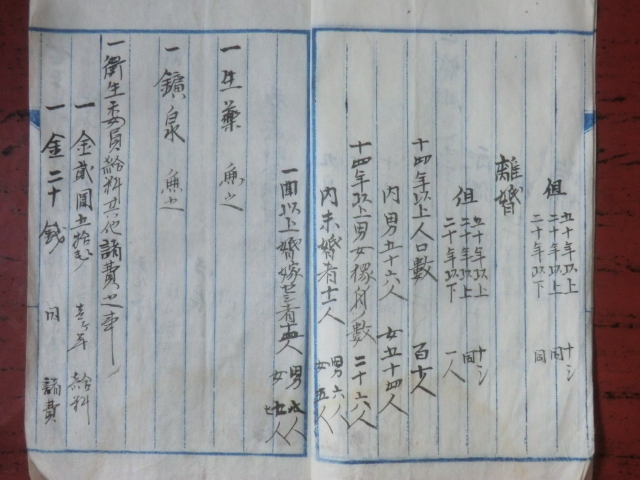 但 五十年以上 十
二十年以上 同
二十年以下 同
離婚
但 五十年以上 十
二十年以上 同
二十年以下 一人
十四年以上人口數 百十人
内男五十六人 女五十四人
十四年以上男女 身數 二十六人
内未婚者十一人 男六人 女五人
一 以上婚嫁セシ者 人 男 人 女 人
一生藥 無之
一鑛泉 無之
一衛生委員給料其他諸費之事
一金貳圓五拾 壱ヶ年 給料
一金二十銭 同 諸費